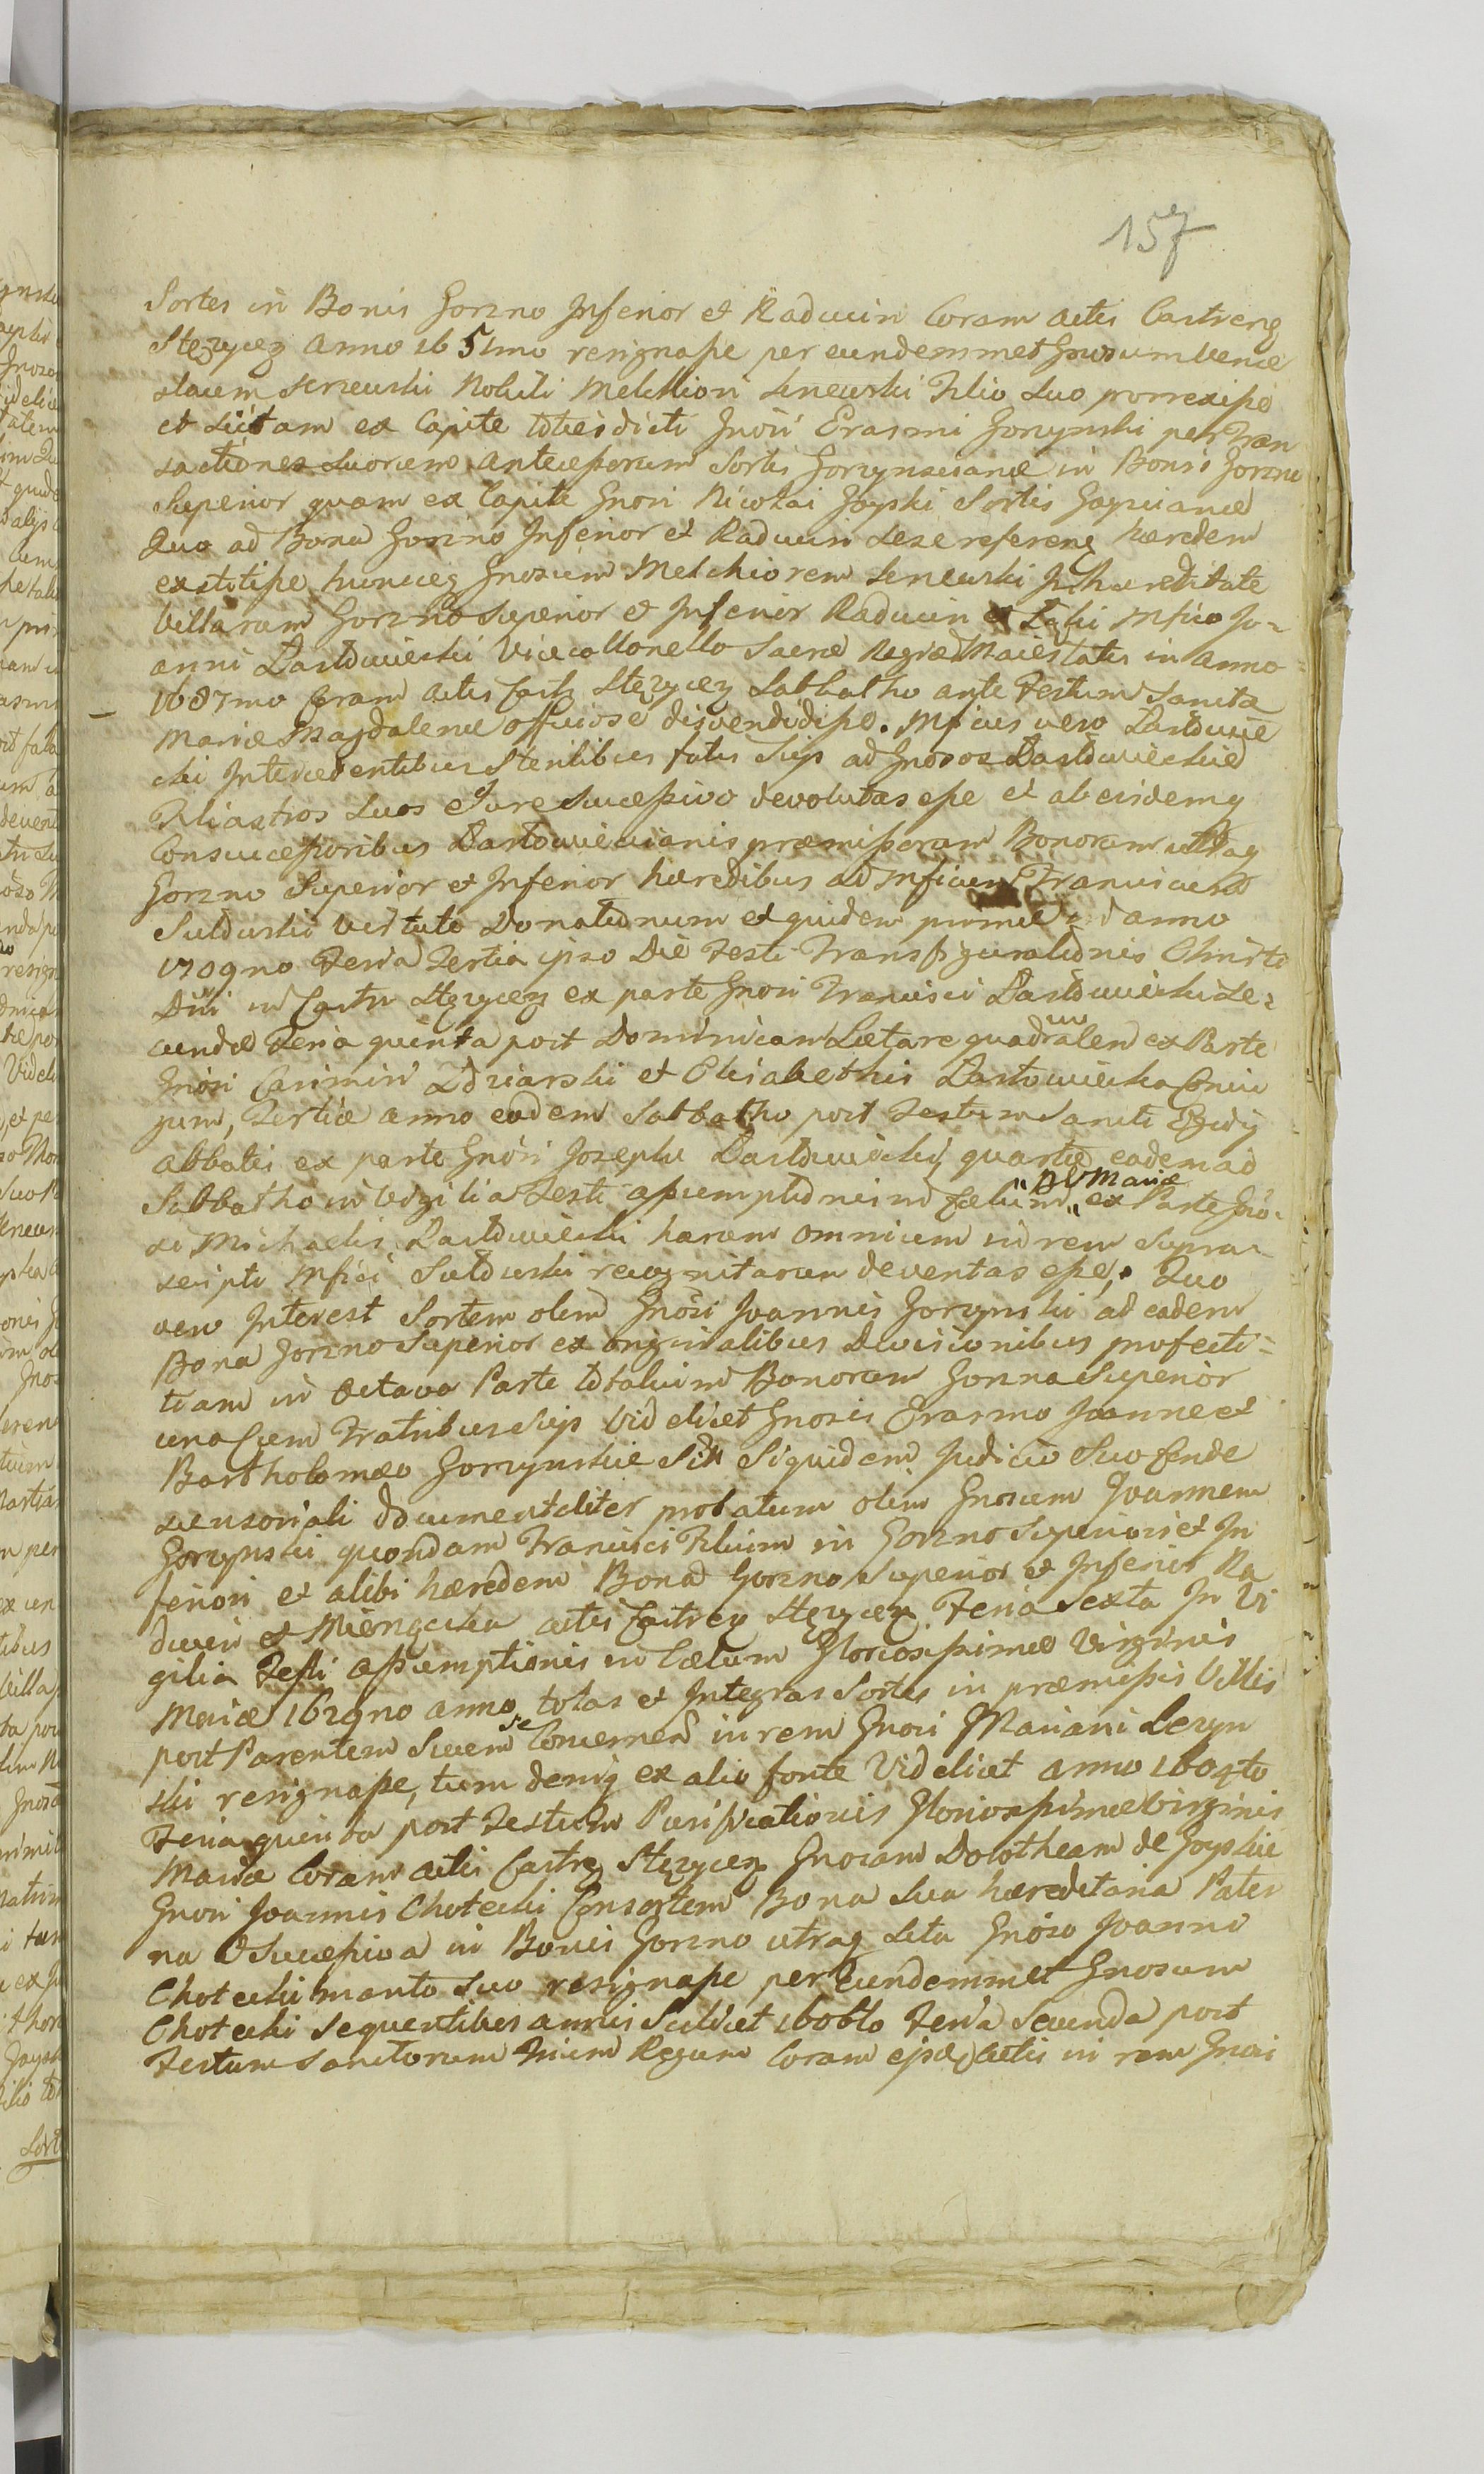 157
Sortes in Bonis Gorzno Inferior et Radwin Coram actis Castreng
Stęzyceg anno 1651mo resignaſse per eundemmet Gnosum Vence
slaum Seneuski Nobili Melchiori Seneuski Filio Suo porrexiſse
et Sictam ex Capite toties dicti Gnosi Erasmi Gorzynski per Tran
sactiones Suorum Anteceſsorum Sortis Gorzynscianæ in Bonis Gorzno
Superior quam ex Capite Gnosi Nicolai Joyski Sortis
Quo ad Bona Gorzno Inferior et Radwin Sese refereng hæredem
exstitiſse hunceg Gnosum Melchiorem Seneuski In hæreditate
Villarum Gorzno Superior et Inferior Radwin et Mfico Jo=
anni Dastwiecki Vicecollonello Sacræ Regiæ Maiestatis in anno
1687mo Coram actis Castr Stęzyceg Sabbatho ante Festum Sanctæ
Mariæ Magdalenæ officiose disvendidiſse. Mficus vero Dastwie
cki Intercedentibus Sterilibus fatis Suis ad Gnosos Dastwieckie
Filiastros Suos Jure Succeſsivo devolutas eſse et ab eisdemq
Consucceſsoribus Dastwiecianis præmiſsorum Bonorum utraq
Gorzno Superior et Inferior hæredibus ad Mficum Franciscum
Suldurski Vertute Donationum et quidem primæ d anno
1709no Feria Tertia ipso Die Festi Transfigurationis Christi
Dni in Castr Stęzyceg ex parte Gnosi Francisci Dastwiecki Se=
cundæ Feria quinta post Dominicam Lætare quadralem ex Parte
Gnosi Casimiri Zdziarski et Elisabethis Dastwiecka Coniu
gum, Tertiæ anno eodem Sabbatho post Festum Sancti Egidij
Abbatis ex parte Gnosi Josephi Dastwiecki, quartæ eodem aõ
Sabbatho in Vigilia Festi aſsumptionis in Cælum "B V Mariæ" ex Parte Gno=
si Michaelis Dastwiecki harum omnium in rem Supra=
scripti Mfici Suldurski recognitarum deventas eſse. Quo
vero Interest Sortem olim Gnosi Joannis Gorzynski ad eadem
Bona Gorzno Superior ex originalibus Divisionibus profecti=
tiam in Octava Parte totalium Bonorum Gorzna Superior
una Cum Fratribus Suis Videlicet Gnosis Erasmo Joanne et
Bartholomæo Gorzynskie Siquidem Judicio Suo Conde
scensoriali documentaliter probatum olim Gnosum Joannem
Gorzynski quondam Francisci Filium in Gorzno Superiori et In
feriori et alibi hæredem Bona Gorzno Superior et Inferior Ra
dwin et Mięnącka actis Castreg Stęzyceg Feria Sexta In Vi
gilia Festi aſsumptionis in Cælum Gloriosiſsimæ Virginis
Mariæ 1629no anno, totas et Integras Sortes in præmiſsis Villis
post Parentem Suum se Concernen in rem Gnosi Mariani Lezyn
ski resignaſse, tum deniq ex alio fonte Videlicet anno 1604to
Feria quinta post Festum Purificationis Gloriosiſsimæ Virginis
Mariæ Coram actis Castreg Stęzyceg Gnosam Dorotheam de Joyskie
Gnosi Joannis Chotecki Consortem Bona Sua hæreditaria Pater
na et Succeſsiva in Bonis Gorzno utraq Sita Gnoso Joanni
Chotecki marito Suo resignaſse per Eundemmet Gnosum
Chotecki Sequentibus annis Scilicet 1606to Feria Secunda post
Festum Sanctorum Trium Regum Coram eisdeq actis in rem Gnosi